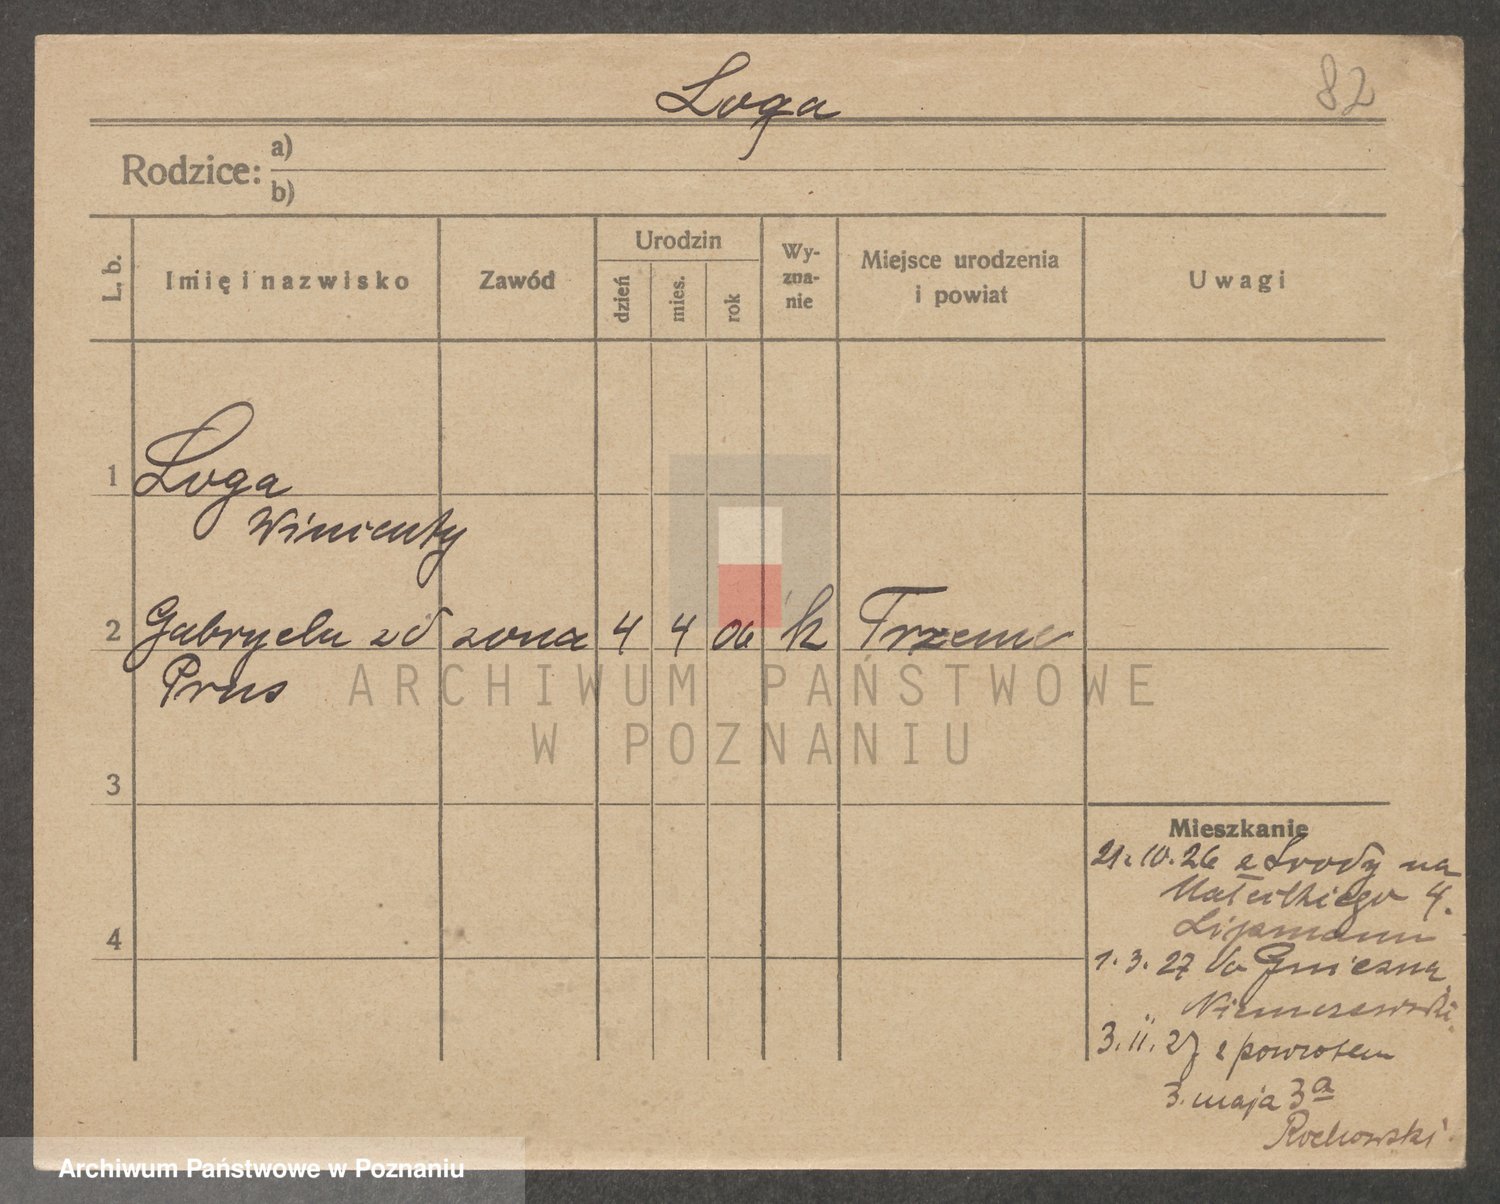 Loga
82
Rodzice:
a)
b)
L. b.
Imię i nazwisko
Zawód
Urodzin
dzień
mies.
rok
Wy-
zna-
nie
Miejsce urodzenia
i powiat
Uwagi
1
Loga
Wincenty
2
Gabryela zd żona 4 4 06 k Trzeme
Prus
ARCHIWUM PAŃSTWOWE
W POZNANIU
3
4
Mieszkanie
21.10.26 z Środy na
4.
Lipmann
1.3.27 do Gniezna
Niemczewski
3.11.27 z powrotem
3. maja 3a
Rochowski
Archiwum Państwowe w Poznaniu